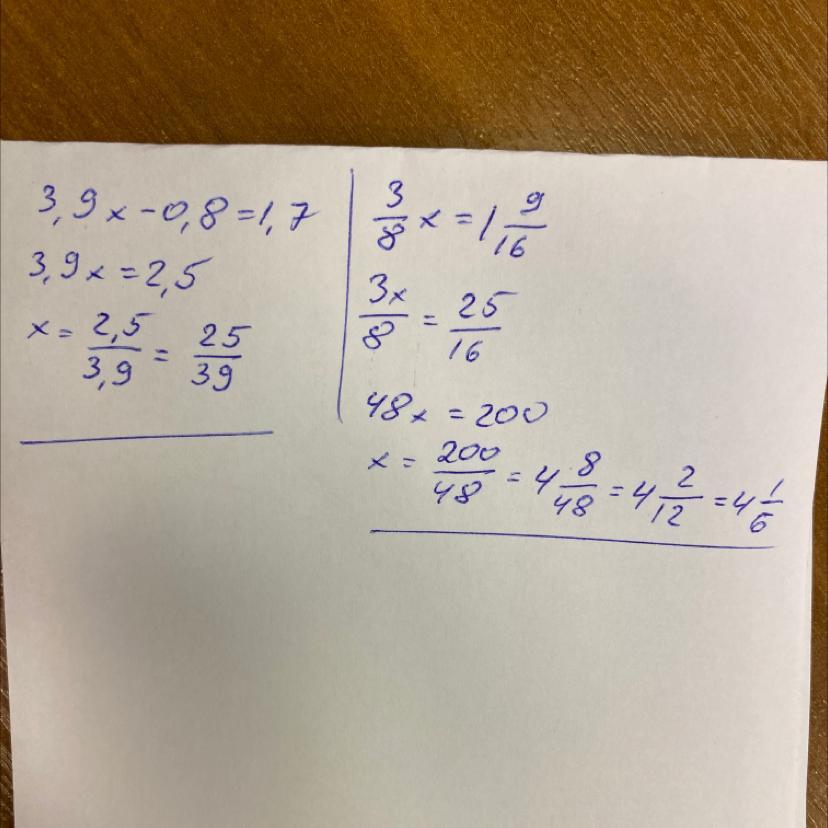 3,9x-0,8=1,7
3,9x=2,5
x= 2,5/3,9 = 25/39
3/8 x = 1 9/16
3x/8 = 25/16
48x = 200
x = 200/48 = 4 8/48 = 4 2/12 = 4 1/6